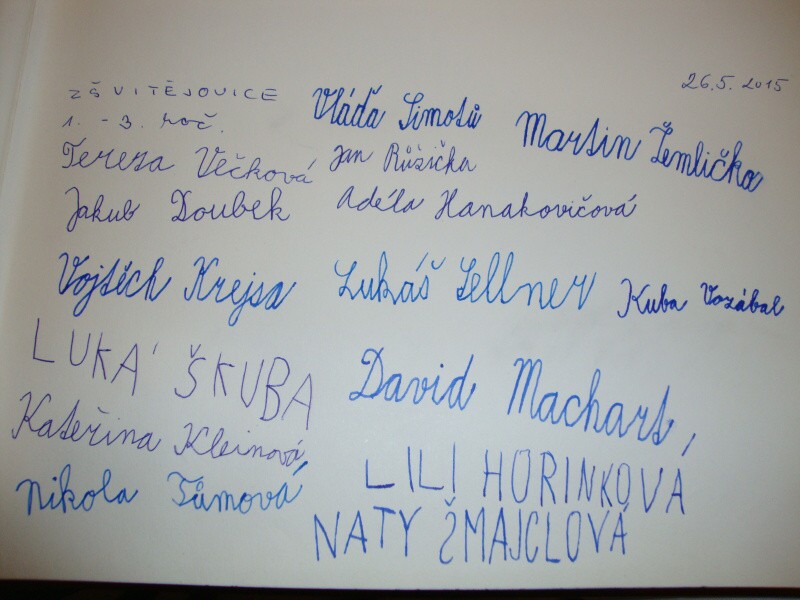 26.5. 2015
ZŠ VITĚJOVICE
1. - 3. roč.
Vláďa Simotů
Martin Žemlička
Tereza Večková
Jan Růžička
Jakub Doubek
Adéla Hanakovičová
Vojtěch Krejsa
Lukáš Sellner
Kuba Vozábal
LUKÁ ŠKUBA
David Machart,
Kateřina Kleinová
LILI HORINKOVA
Nikola Tůmová
NATY ŽMAJCLOVÁ